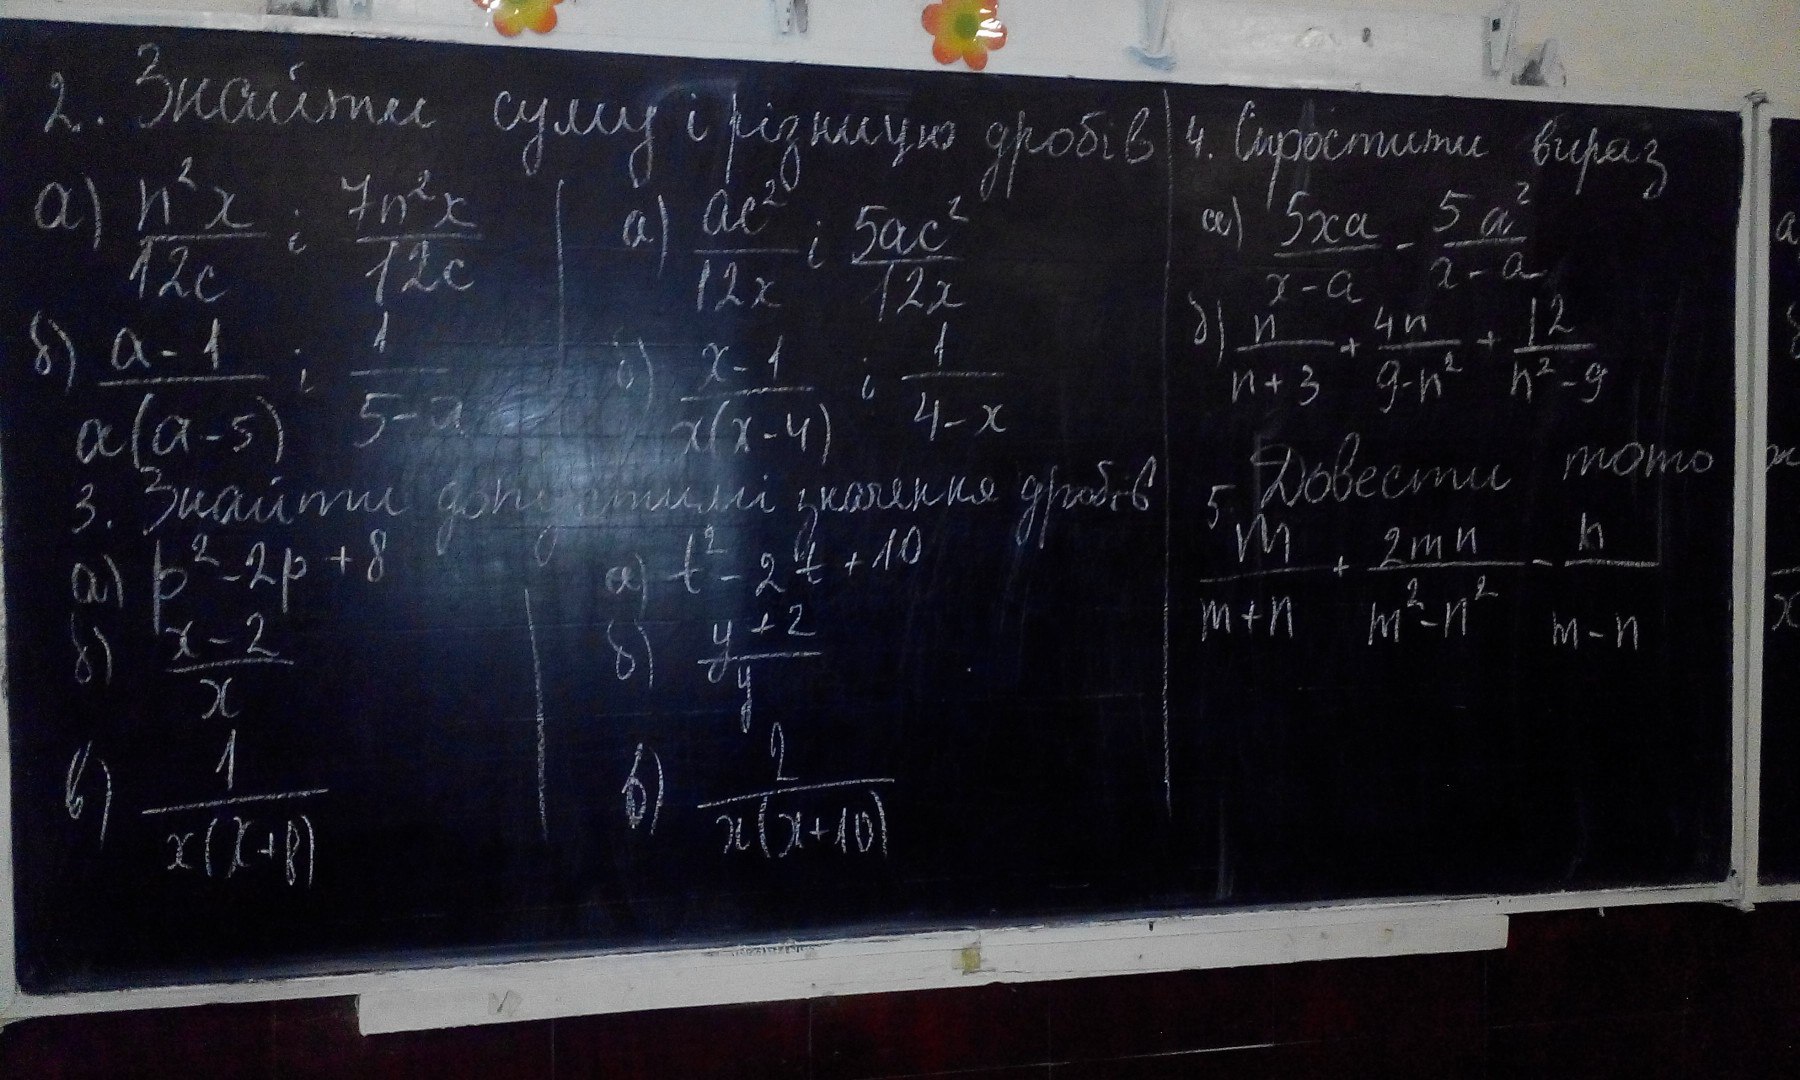 2. Знайти суму і різницю дробів
а) n²x/12c і 7n²x/12c
б) a-1/a(a-5) і 1/5-a
а) ac²/12x і 5ac²/12x
б) x-1/x(x-4) і 1/4-x
3. Знайти допустимі значення дробів
а) p²-2p+8
б) x-2/x
в) 1/x(x+8)
а) t²-2t+10
б) y+2/y
в) 2/x(x+10)
4. Спростити вираз
а) 5xa/x-a - 5a²/x-a
б) n/n+3 + 4n/9-n² + 12/n²-9
5. Довести тото
m/m+n + 2mn/m²-n² - n/m-n